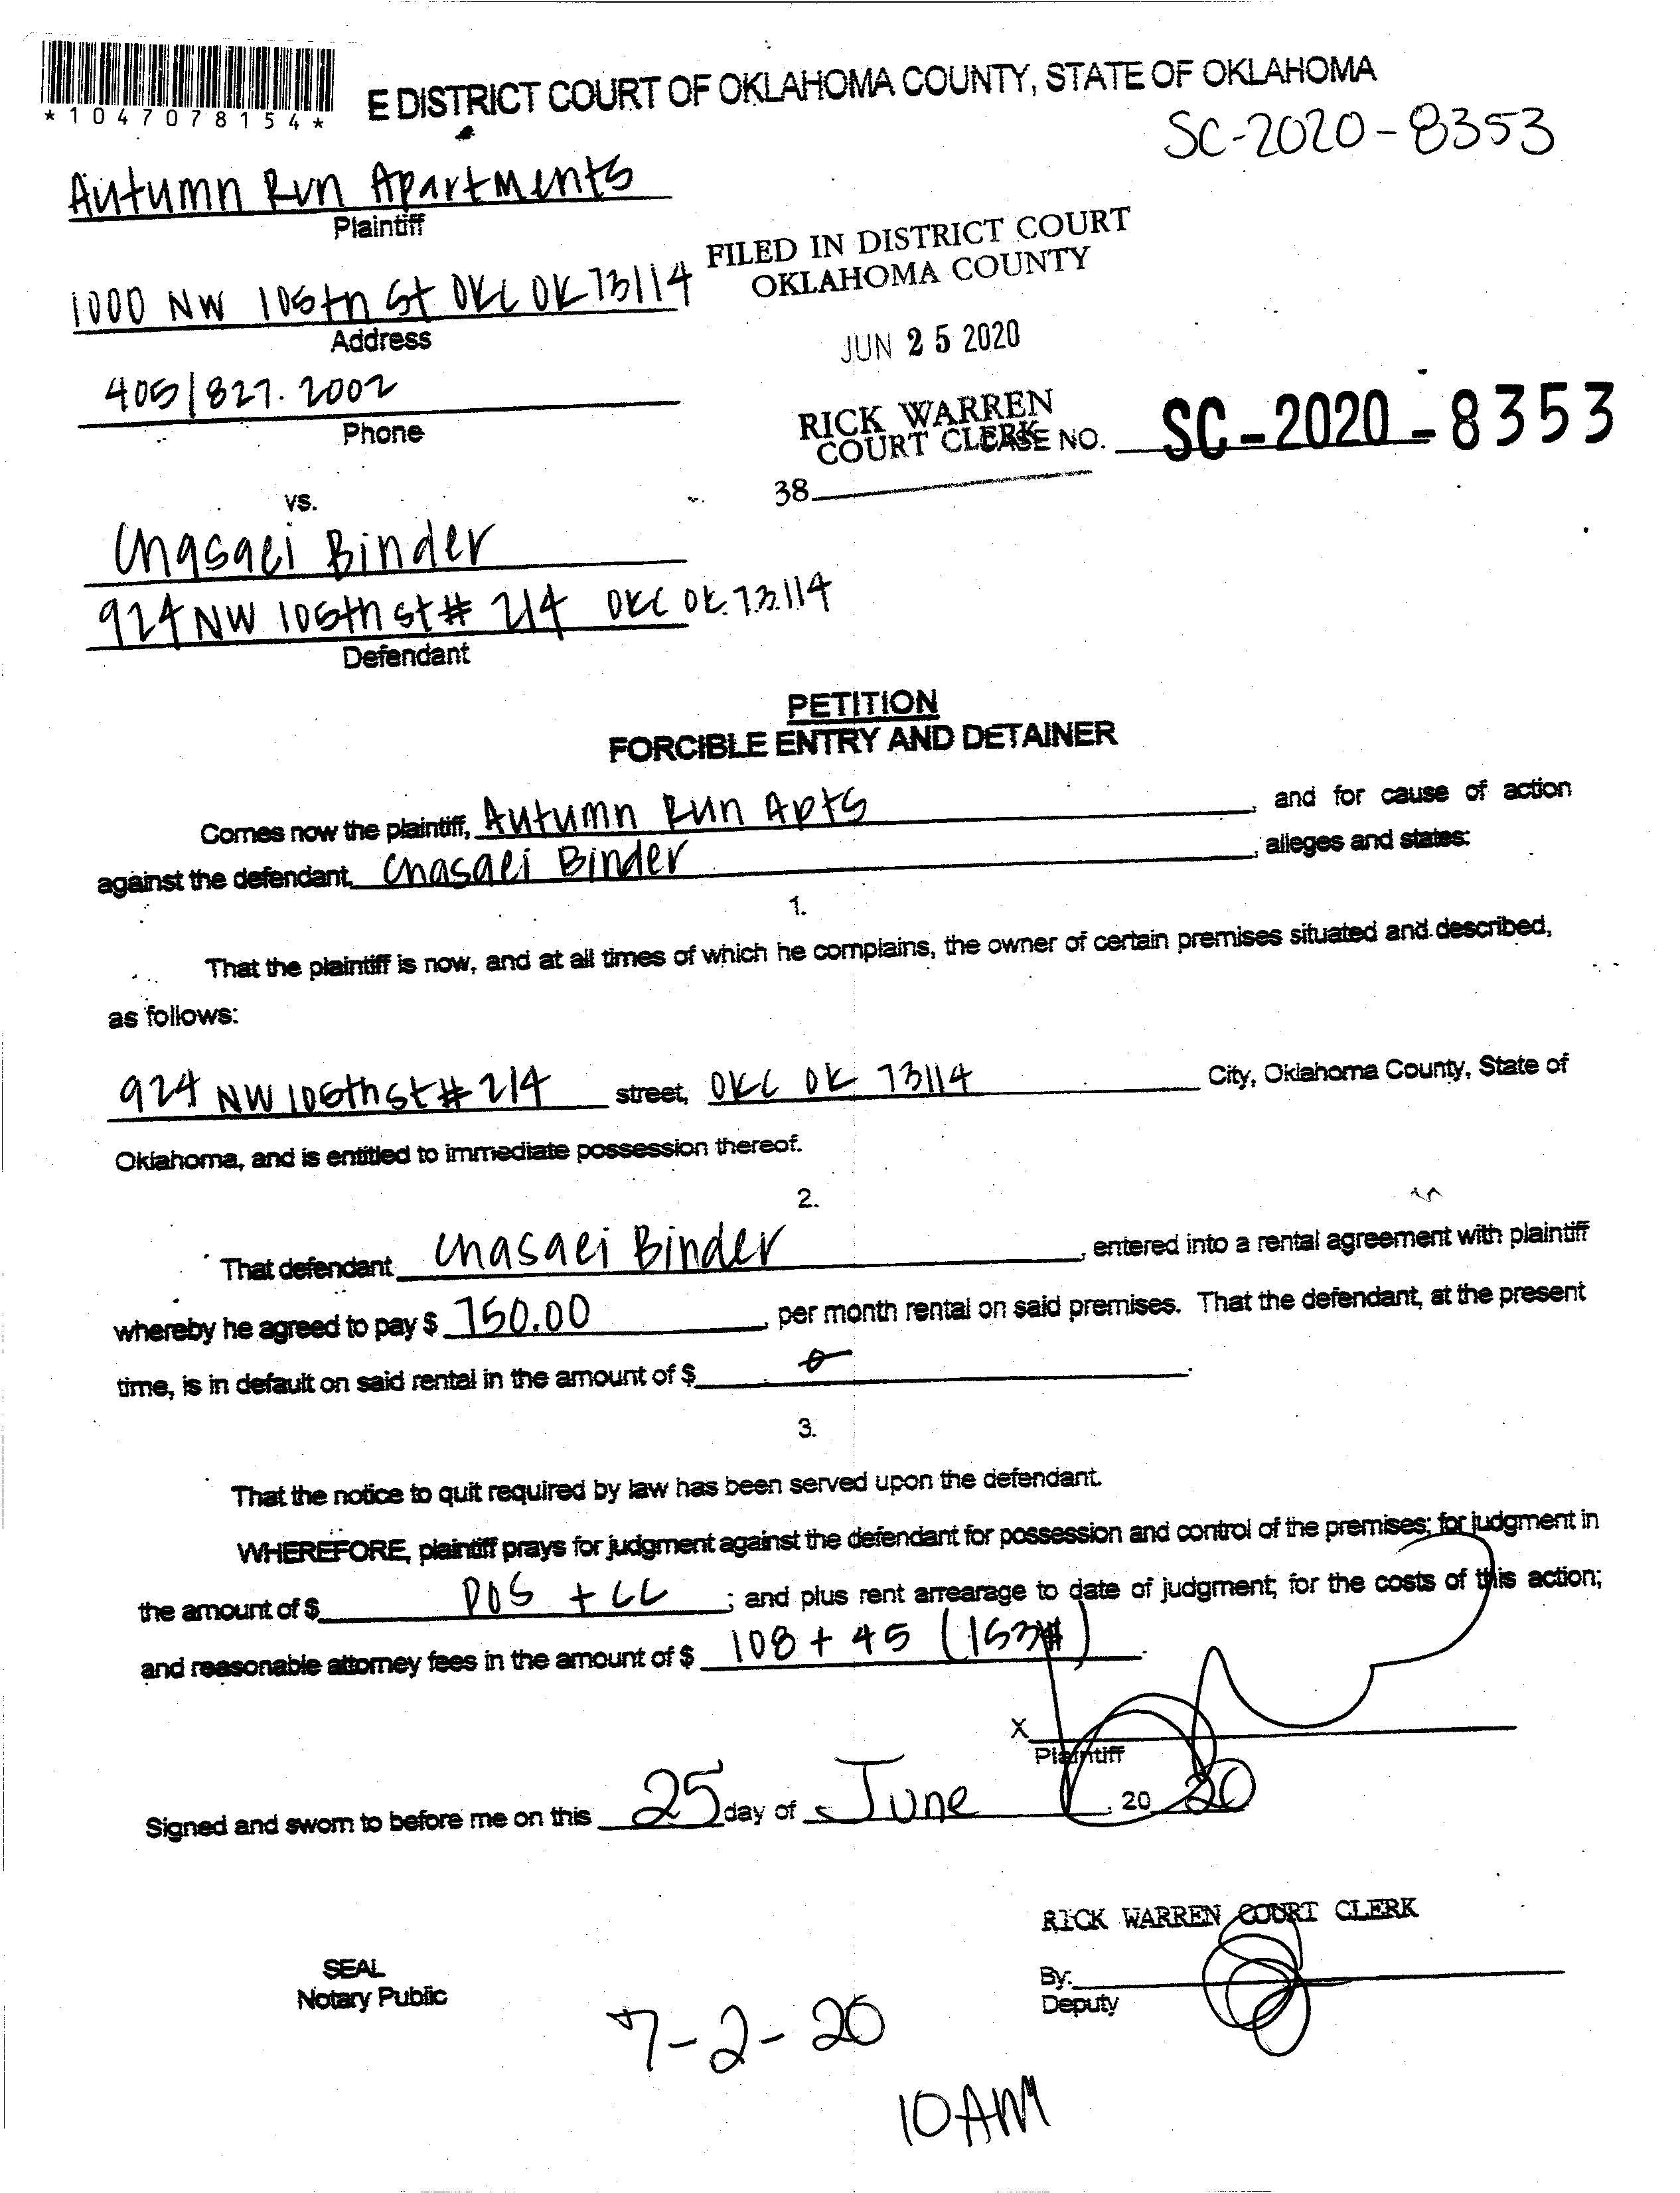 *1047078154*
E DISTRICT COURT OF OKLAHOMA COUNTY, STATE OF OKLAHOMA
SC-2020-8353
Autumn Run Apartments
Plaintiff
FILED IN DISTRICT COURT
OKLAHOMA COUNTY
1000 NW 105th St OKC OK 73114
Address
JUN 25 2020
405|827.2002
Phone
RICK WARREN
COURT CLERK
CASE NO. SC-2020-8353
38
vs.
Chasaei Binder
924 NW 106th st # 214 OKC OK. 73114
Defendant
PETITION
FORCIBLE ENTRY AND DETAINER
Comes now the plaintiff, Autumn Run Apts, and for cause of action
against the defendant, Chasaei Binder, alleges and states:
1.
That the plaintiff is now, and at all times of which he complains, the owner of certain premises situated and described,
as follows:
924 NW 106th st # 214 street, OKC OK 73114 City, Oklahoma County, State of
Oklahoma, and is entitled to immediate possession thereof.
2.
That defendant Chasaei Binder, entered into a rental agreement with plaintiff
whereby he agreed to pay $ 750.00, per month rental on said premises. That the defendant, at the present
time, is in default on said rental in the amount of $ 0.
3.
That the notice to quit required by law has been served upon the defendant.
WHEREFORE, plaintiff prays for judgment against the defendant for possession and control of the premises; for judgment in
the amount of $ POS + CC ; and plus rent arrearage to date of judgment; for the costs of this action;
and reasonable attorney fees in the amount of $ 108 + 45 (153#).
X
Plaintiff
Signed and sworn to before me on this 25 day of June, 2020
RICK WARREN COURT CLERK
SEAL
Notary Public
By:
Deputy
7-2-20
10 AM